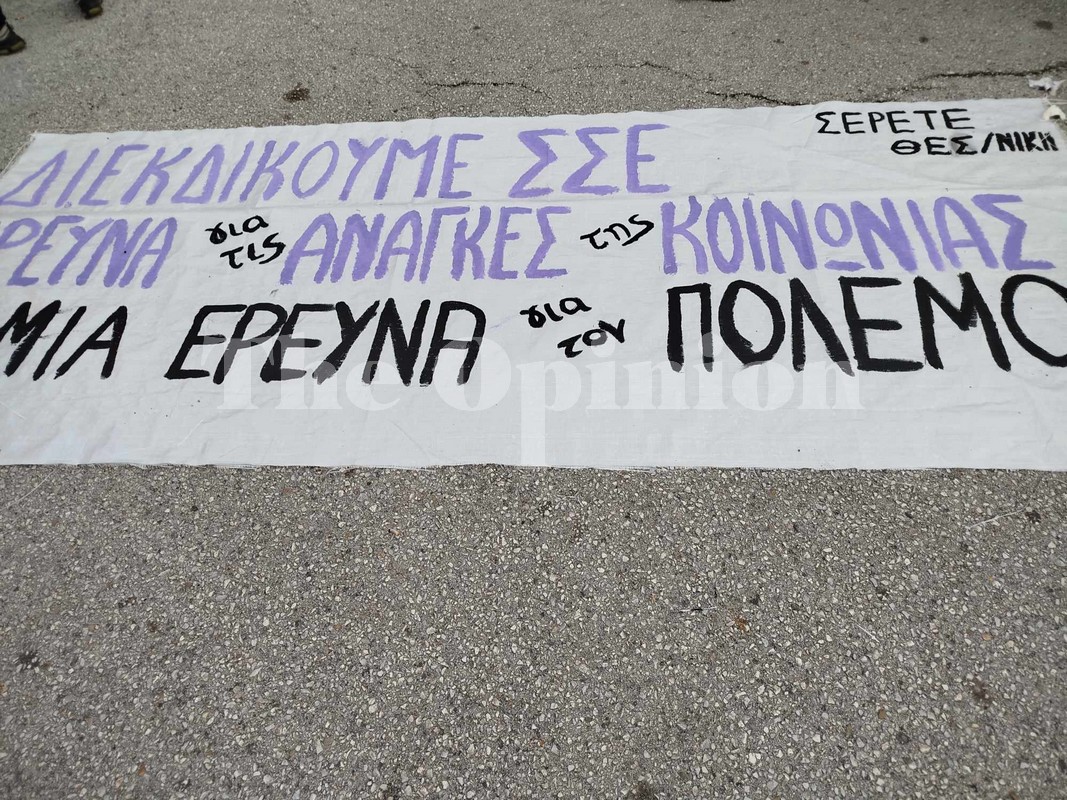 ΔΙΕΚΔΙΚΟΥΜΕ ΣΣΕ
ΣΕΡΕΤΕ
ΘΕΣ/ΝΙΚΗ
ΡΕΥΝΑ για τις ΑΝΑΓΚΕΣ της ΚΟΙΝΩΝΙΑΣ
ΜΙΑ ΕΡΕΥΝΑ για τον ΠΟΛΕΜΟ
The Opinion